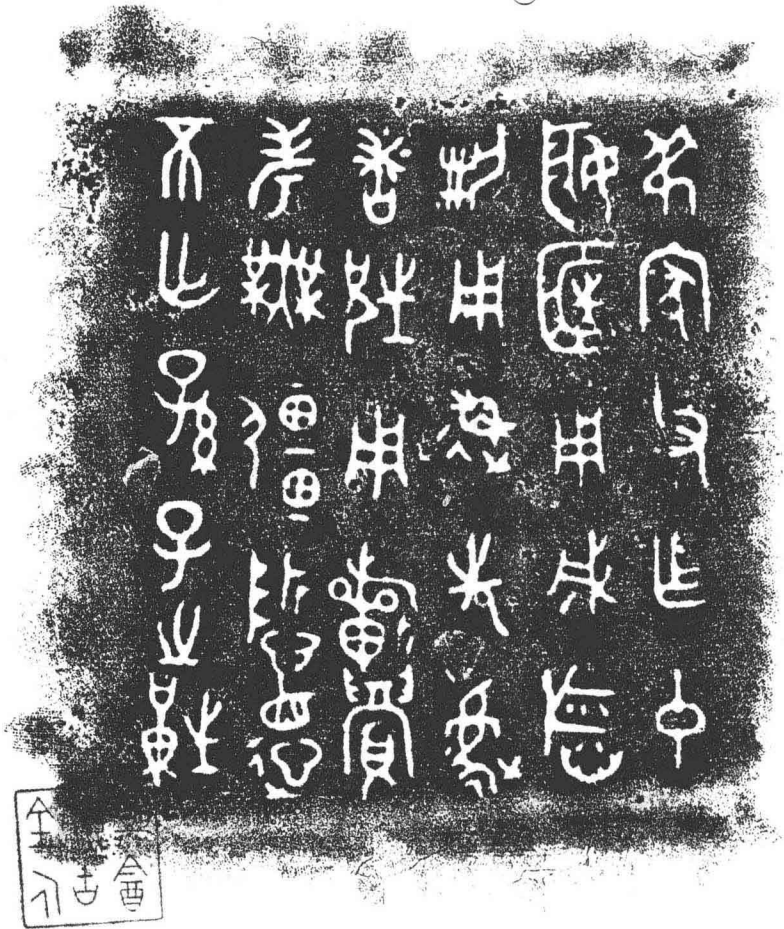 弔家父乍中
姬匡用成稻
粱用速先後
者兄用旂眉
考無疆哲德
不亡孫子之貺